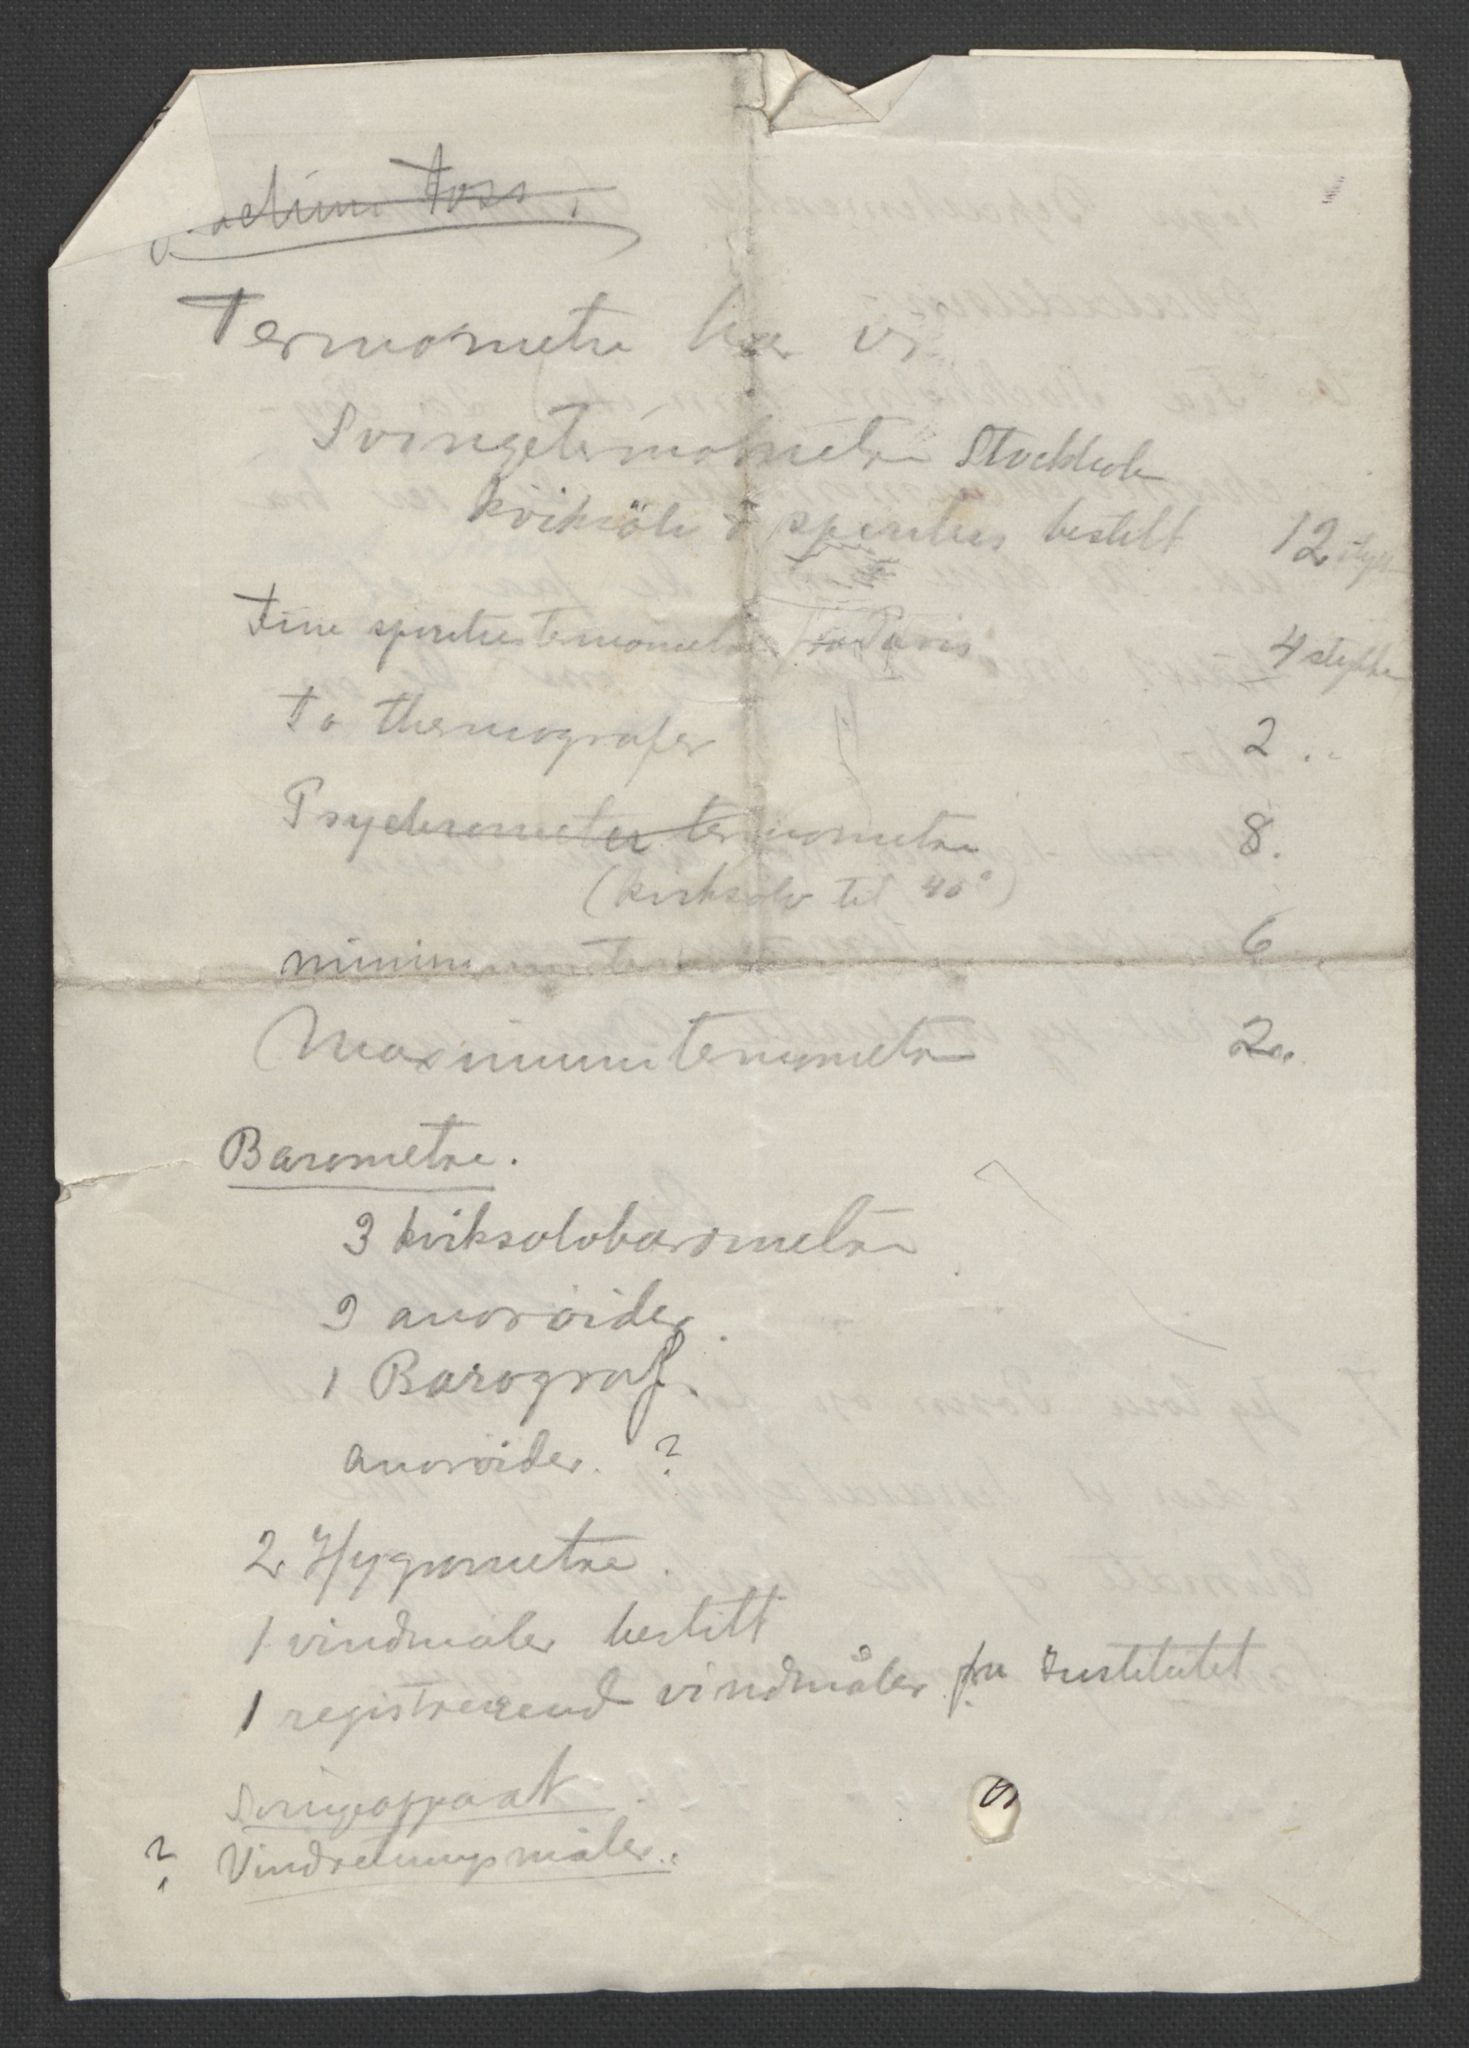 Foss.
Termometre har vi
Svingetermometre Stockholm
kviksölv & spiritus bestilt 12 stykk
Fine spiritustermometre fra Paris 4 stykke
To thermografer 2 ..
Psychrometer termometre 8.
(kviksølv til 40°)
minimumtermometre 6
Maximumtermometre 2..
Barometre.
3 kviksølvbarometre
3 aneroider.
1 Barograf.
aneroider. ?
2 Hygrometre.
1 vindmåler bestilt
1 registrerend vindmåler fra Institutet
Svingeapparat
? Vindretningsmåler.